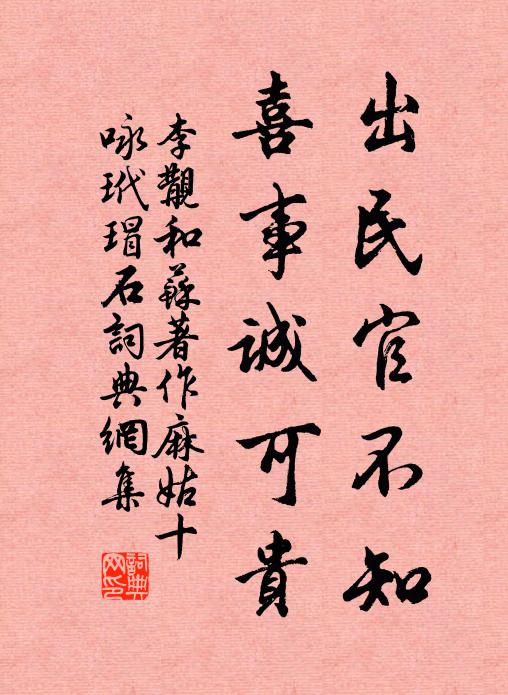 出民官不知
喜事誠可貴
李覯和蘇著作麻姑十
咏玳瑁石詞典網集
詞典網印